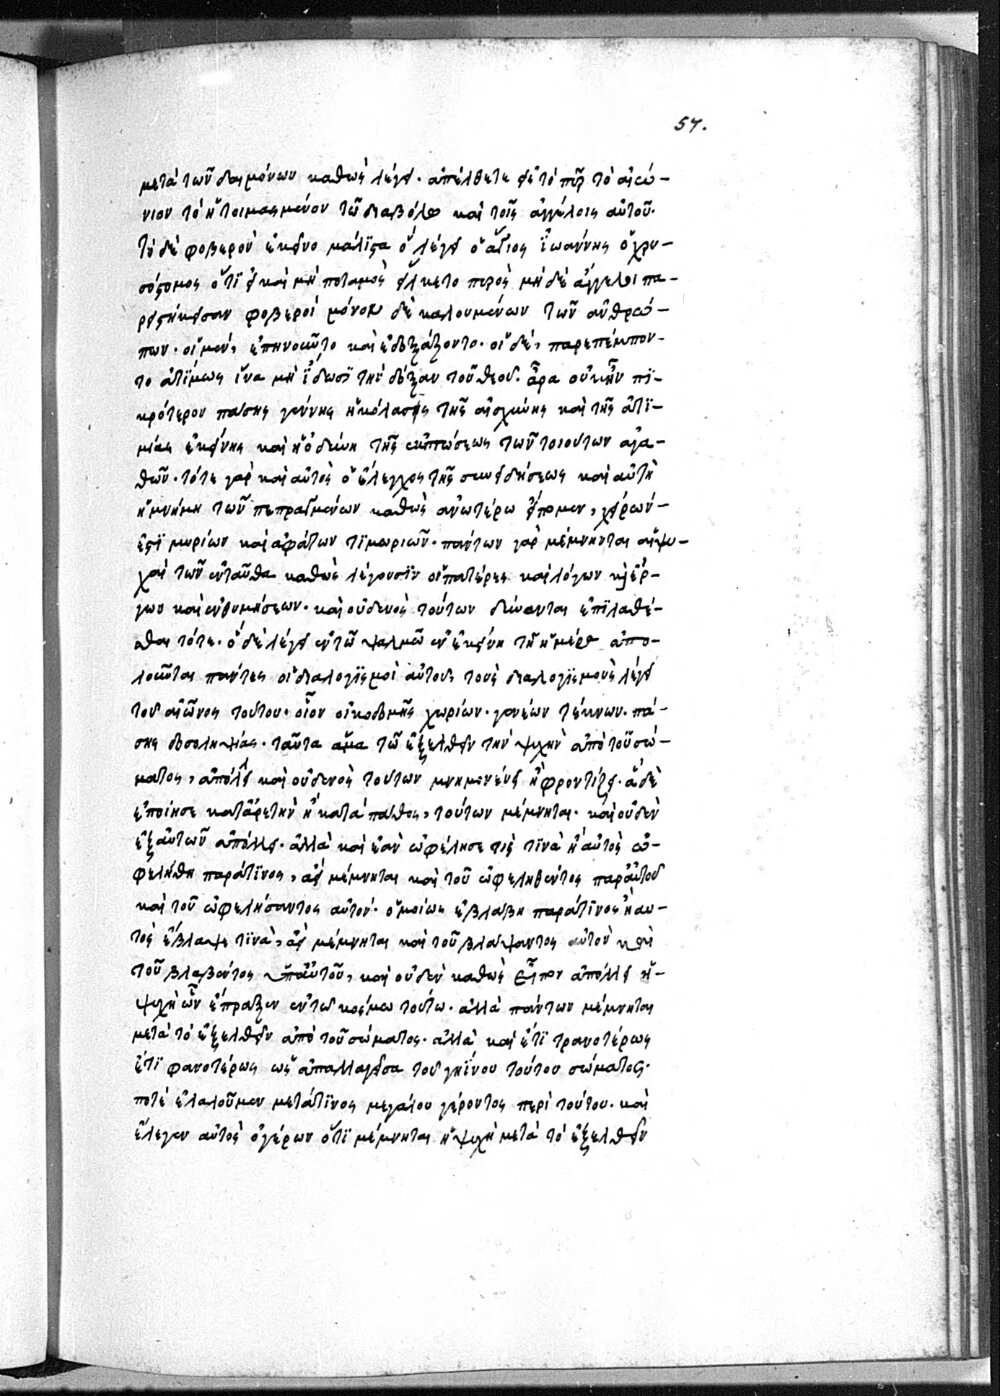 57.
μετὰ τῶν δαιμόνων καθὼς λέγει· ἀπέλθετε εἰς τὸ πῦρ τὸ αἰώ–
νιον τὸ ἡτοιμασμένον τῶ διαβόλω καὶ τοῖς ἀγγέλοις αὐτοῦ·
τὸ δὲ φοβερὸν ἐκεῖνο μάλιστα ὃ λέγει ὁ ἅγιος ἰωάννης ὁ χρυ–
σόστομος ὅτι εἰ καὶ μὴ ποταμὸς εἵλκετο πυρὸς μὴ δὲ ἄγγελοι πα–
ρειστήκεισαν φοβεροὶ μόνον δὲ καλουμένων τῶν ἀνθρώ–
πων· οἱ μὲν, ἐπηνοῦντο καὶ ἐδοξάζοντο· οἱ δὲ, παρεπέμπον–
το ἀτίμως ἵνα μὴ ἴδωσι τὴν δόξαν τοῦ θεοῦ· ἆρα οὐκ ἦν πι–
κρότερον πάσης γεέννης ἡ κόλασις τῆς αἰσχύνης καὶ τῆς ἀτι–
μίας ἐκείνης καὶ ἡ ὀδύνη τῆς ἐκπτώσεως τῶν τοιούτων ἀγα–
θῶν· τότε γὰρ καὶ αὐτὸς ὁ ἔλεγχος τῆς συνειδήσεως καὶ αὐτὴ
ἡ μνήμη τῶν πεπραγμένων καθὼς ἀνωτέρω εἴπομεν, χείρων–
ἐστὶ μυρίων καὶ ἀφάτων τιμωριῶν· πάντων γὰρ μέμνηνται αἱ ψυ–
χαὶ τῶν ἐνταῦθα καθὼς λέγουσιν οἱ πατέρες καὶ λόγων κ ἔρ–
γων καὶ ἐνθυμήσεων· καὶ οὐδενὸς τούτων δύνανται ἐπιλαθέ–
σθαι τότε· ὁ δὲ λέγει ἐν τῶ ψαλμῶ ἐν ἐκείνη τῆ ἡμέρα ἀπο–
λοῦνται πάντες οἱ διαλογισμοὶ αὐτοῦ, τοὺς διαλογισμοὺς λέγει
τοῦ αἰῶνος τούτου· οἷον οἰκοδομῆς χωρίων· γονέων τέκνων· πά–
σης δοσοληψίας· ταῦτα ἅμα τῶ ἐξελθεῖν τὴν ψυχὴν ἀπὸ τοῦ σώ–
ματος, καὶ οὐδενὸς τούτων μνημονεύει ἢ φροντίζει· ἃ δὲ
ἐποίησε κατ' ἀρετὴν ἢ κατὰ πάθος, τούτων μέμνηται· καὶ οὐδὲν
ἐξ αὐτῶν ἀπόλλει· ἀλλὰ καὶ ἐὰν ὠφέλησέ τις τινὰ ἢ αὐτὸς ὠ–
φελήθη παρά τινος, ἀεὶ μέμνηται καὶ τοῦ ὠφεληθέντος παρ' αὐτοῦ
καὶ τοῦ ὠφελήσαντος αὐτόν· ὁμοίως ἐβλάβη παρά τινος ἢ αὐ–
τὸς ἔβλαψε τινὰ, ἀεὶ μέμνηται καὶ τοῦ βλάψαντος αὐτὸν καὶ
τοῦ βλαβέντος ὑπ' αὐτοῦ, καὶ οὐδὲν καθὼς εἶπον ἀπόλλει ἡ–
ψυχὴ ὧν ἔπραξεν ἐν τῶ κόσμω τούτω· ἀλλὰ πάντων μέμνηται
μετὰ τὸ ἐξελθεῖν ἀπὸ τοῦ σώματος· ἀλλὰ καὶ ἔτι τρανοτέρως
ἔτι φανοτέρως ὡς ἀπαλλαγεῖσα τοῦ γηίνου τούτου σώματος·
ποτὲ ἐλαλοῦμεν μετά τινος μεγάλου γέροντος περὶ τούτου· καὶ
ἔλεγεν αὐτὸς ὁ γέρων ὅτι μέμνηται ἡ ψυχὴ μετὰ τὸ ἐξελθεῖν